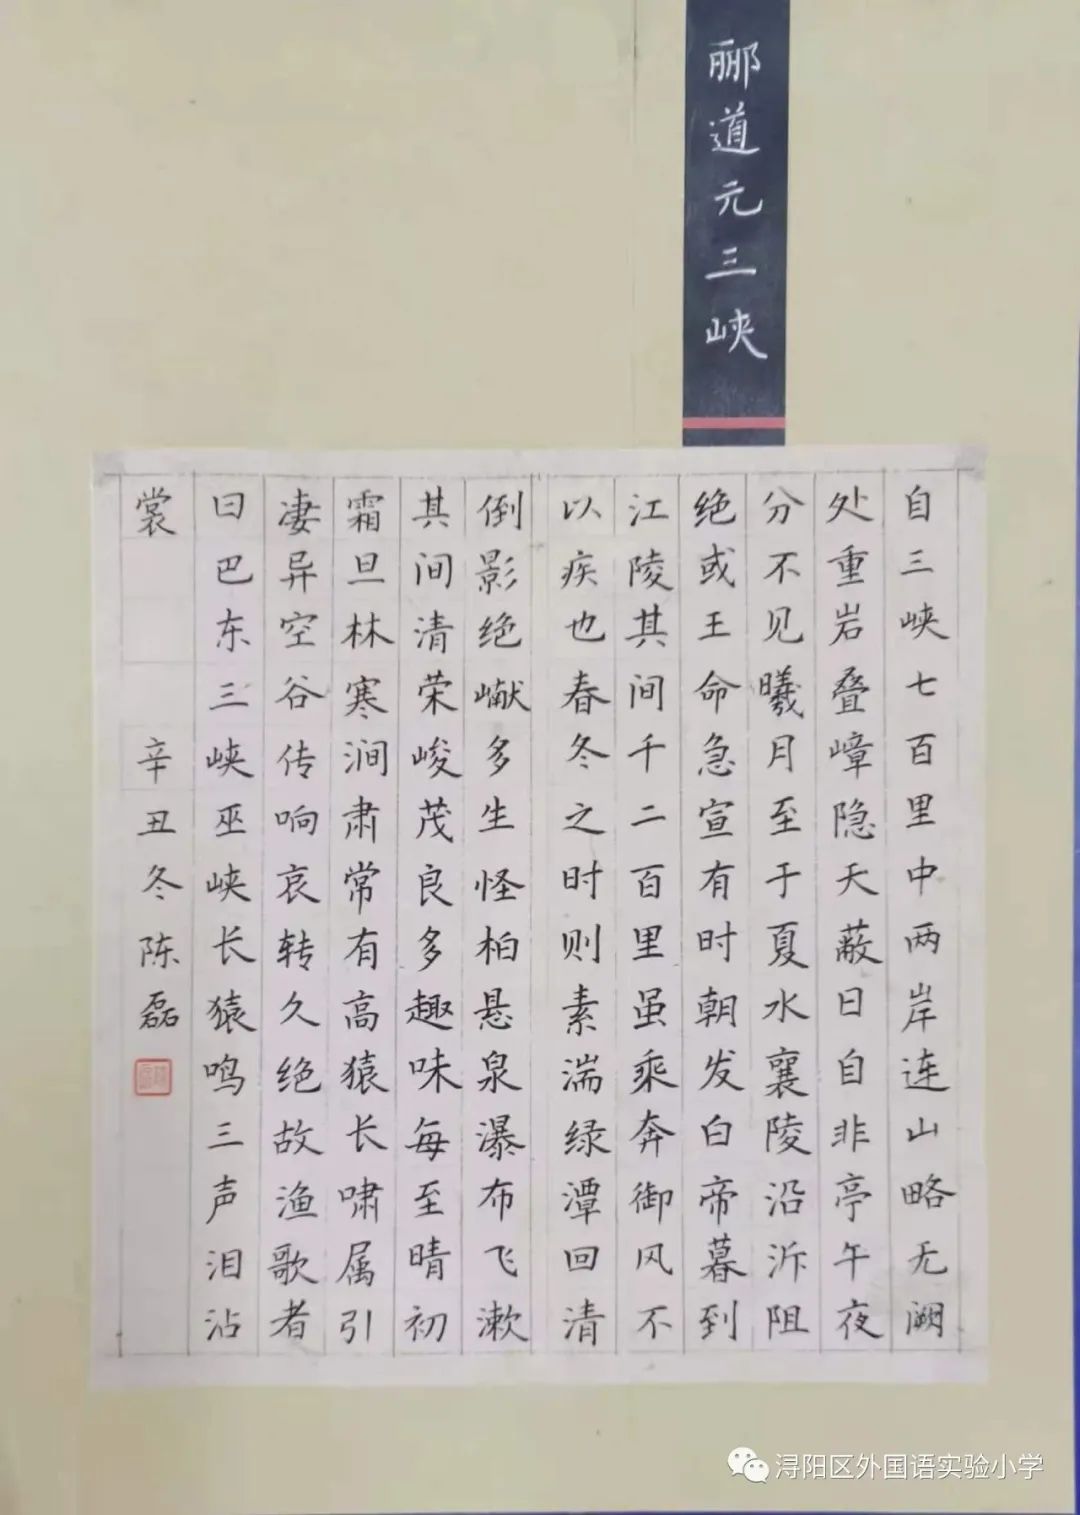 郦道元三峡
自三峡七百里中两岸连山略无阙
处重岩叠嶂隐天蔽日自非亭午夜
分不见曦月至于夏水襄陵沿泝阻
绝或王命急宣有时朝发白帝暮到
江陵其间千二百里虽乘奔御风不
以疾也春冬之时则素湍绿潭回清
倒影绝巘多生怪柏悬泉瀑布飞漱
其间清荣峻茂良多趣味每至晴初
霜旦林寒涧肃常有高猿长啸属引
凄异空谷传响哀转久绝故渔歌者
曰巴东三峡巫峡长猿鸣三声泪沾
裳
辛丑冬陈磊
浔阳区外国语实验小学